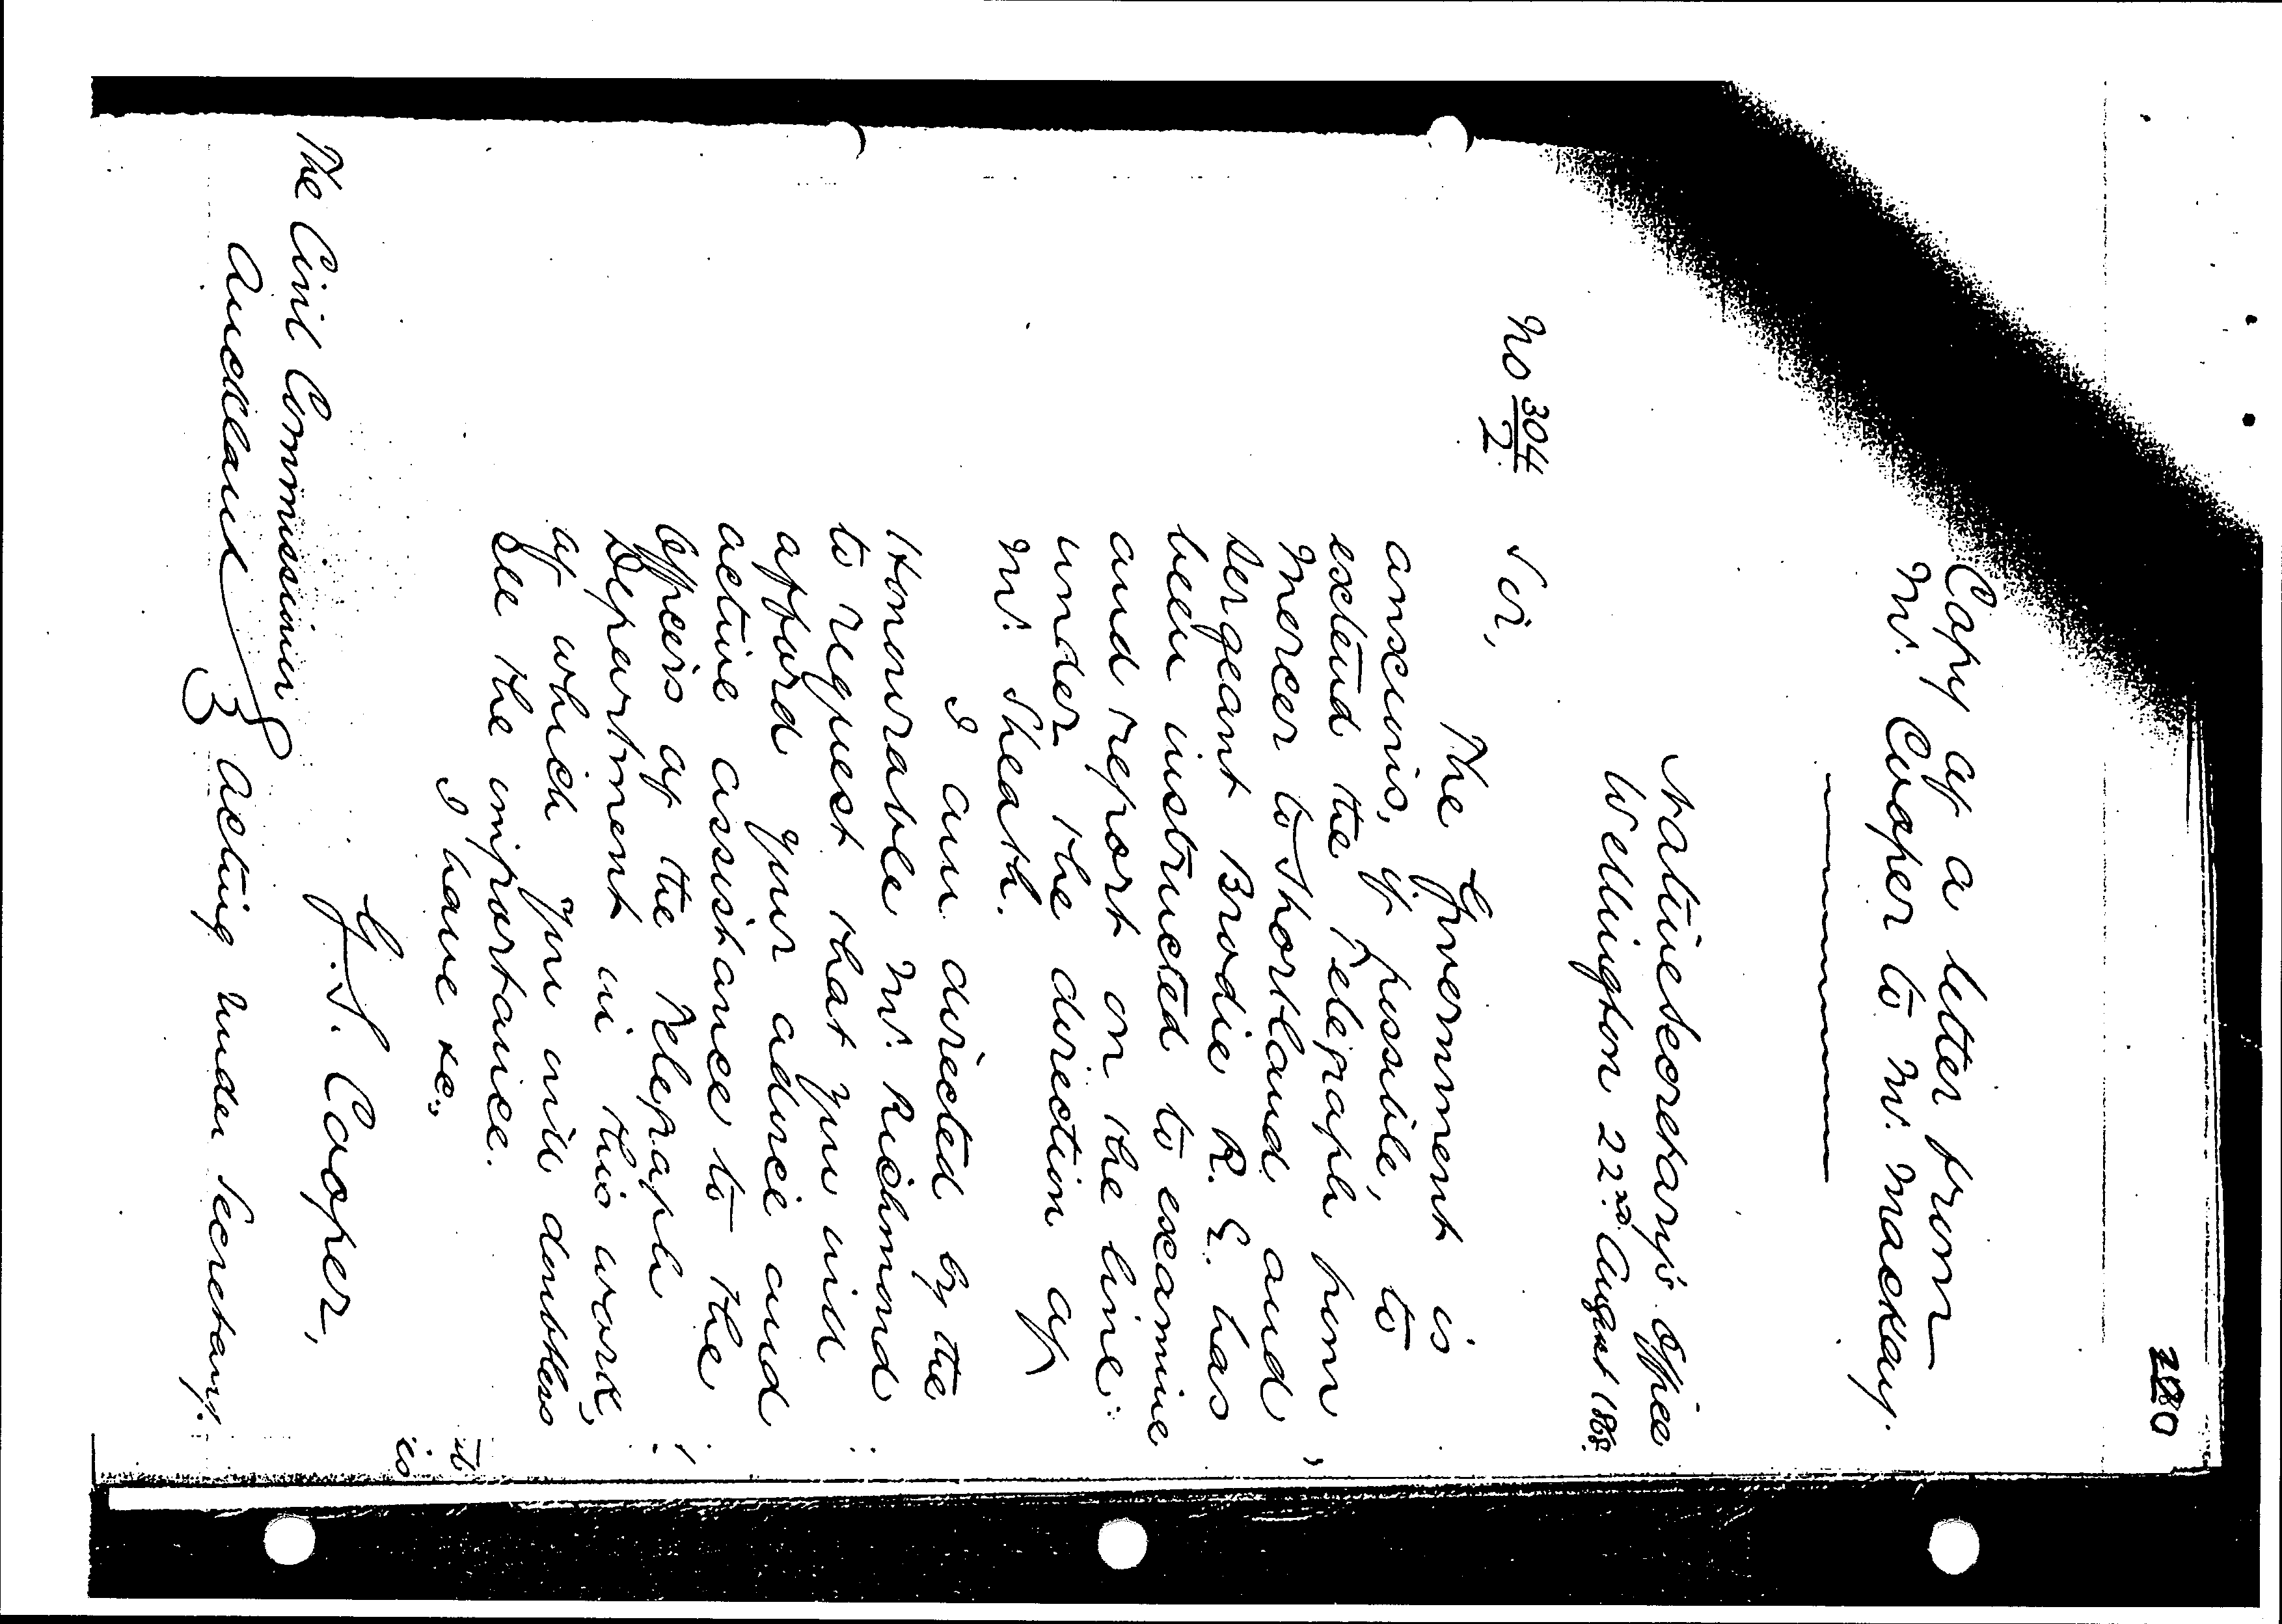 2280
Copy of a letter from
Mr. Cooper to Mr. Mackay.
Native Secretary's Office
Wellington 22nd. August 1868.
No 304/2. Sir,
The Government is
anxious, if possible, to
extend the Telegraph from
Mercer to Shortland, and
Sergeant Brodie R. E. has
been instructed to examine
and report on the line
under the direction of
Mr. Sheath.
I am directed by the
Honourable Mr. Richmond
to request that you will
afford your advice and
active assistance to the
Officers of the Telegraph
Department in this work,
of which you will doubtless
see the importance.
I have &c.,
G. S. Cooper,
Acting Under Secretary.
The Civil Commissioner
Auckland